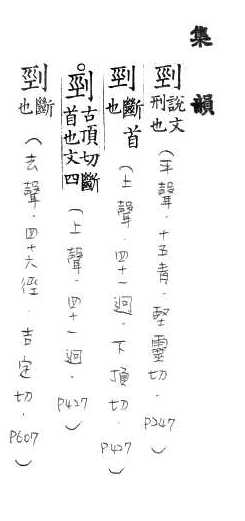 集韻
剄說文刑也（平聲．十五青．堅靈切．P247）
剄斷首也（上聲．四十一迥．下頂切．P427）
剄古頂切斷首也文四（上聲．四十一迥．P427）
剄斷也（去聲．四十六徑．吉定切．P607）